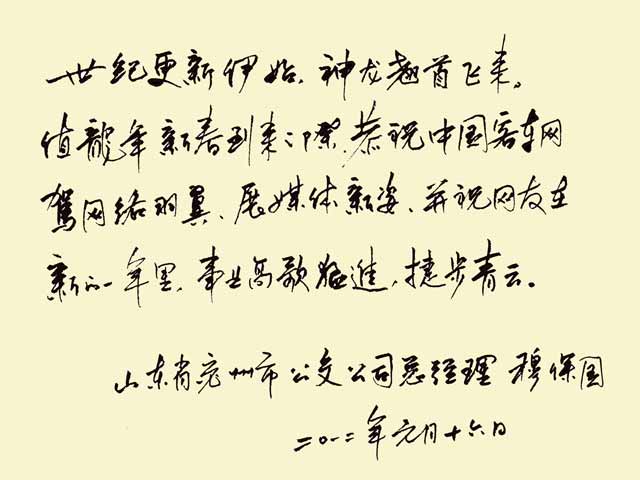 世纪更新伊始，神龙翘首飞来。
值龍年新春到来之際，恭祝中国客车网
駕网络羽翼、展媒体新姿，并祝网友在
新的一年里，事业高歌猛進，捷步青云。
山东省兖州市公交公司总经理 穆保国
二〇一二年元月十六日